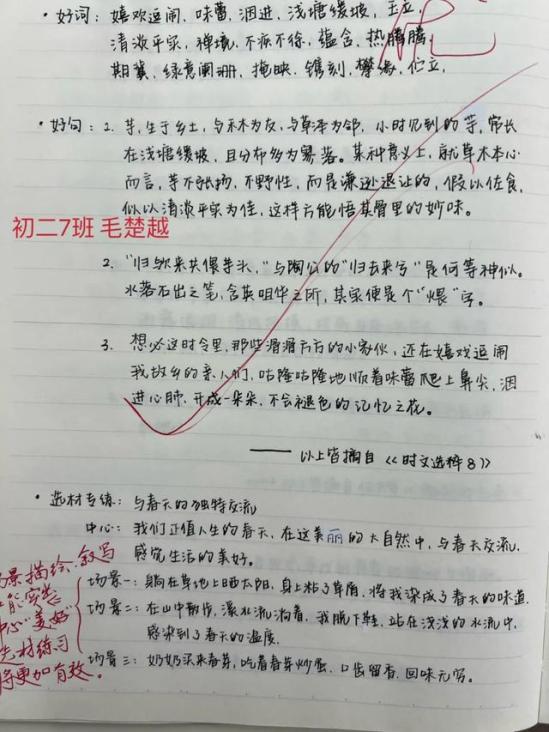 ·好词：嬉欢逗闹、味蕾、洇进、浅塘缓坡、玉立、
清淡平实、禅境、不疾不徐、蕴含、热腾腾
期冀、绿意阑珊、掩映、镌刻、攀缘、伫立、
·好句：1. 芋,生于乡土,与禾木为友,与草泽为邻,小时见到的芋,常长
在浅塘缓坡,且分布多为零落。某种意义上,就草木本心
而言,芋不张扬,不野性,而是谦逊退让的,假以佐食,
似以清淡平实为佳,这样方能悟其骨里的妙味。
初二7班 毛楚越
2. "归欤来共偎芋头,"与陶公的"归去来兮"是何等神似。
水落石出之笔,含英咀华之所,其实便是个"煨"字。
3. 想必这时令里,那些滑滑方方的小家伙,还在嬉戏逗闹
我故乡的亲人们,咕隆咕隆地顺着味蕾爬上鼻尖,洇
进心肺,开成一朵朵,不会褪色的记忆之花。
——以上皆摘自《时文选粹8》
·选材专练：与春天的独特交流
中心：我们正值人生的春天,在这美丽的大自然中,与春天交流,
感觉生活的美好。
景描绘、叙写
能实
中心"美好"
选材练习
将更加有效。
场景一：躺在草地上晒太阳,身上粘了草屑,将我染成了春天的味道.
场景二：在山中散步,溪水流淌着,我脱下鞋,站在浅浅的水流中,
感染到了春天的温度.
场景三：奶奶买来春芽,吃着春芽炒蛋,口齿留香,回味无穷.